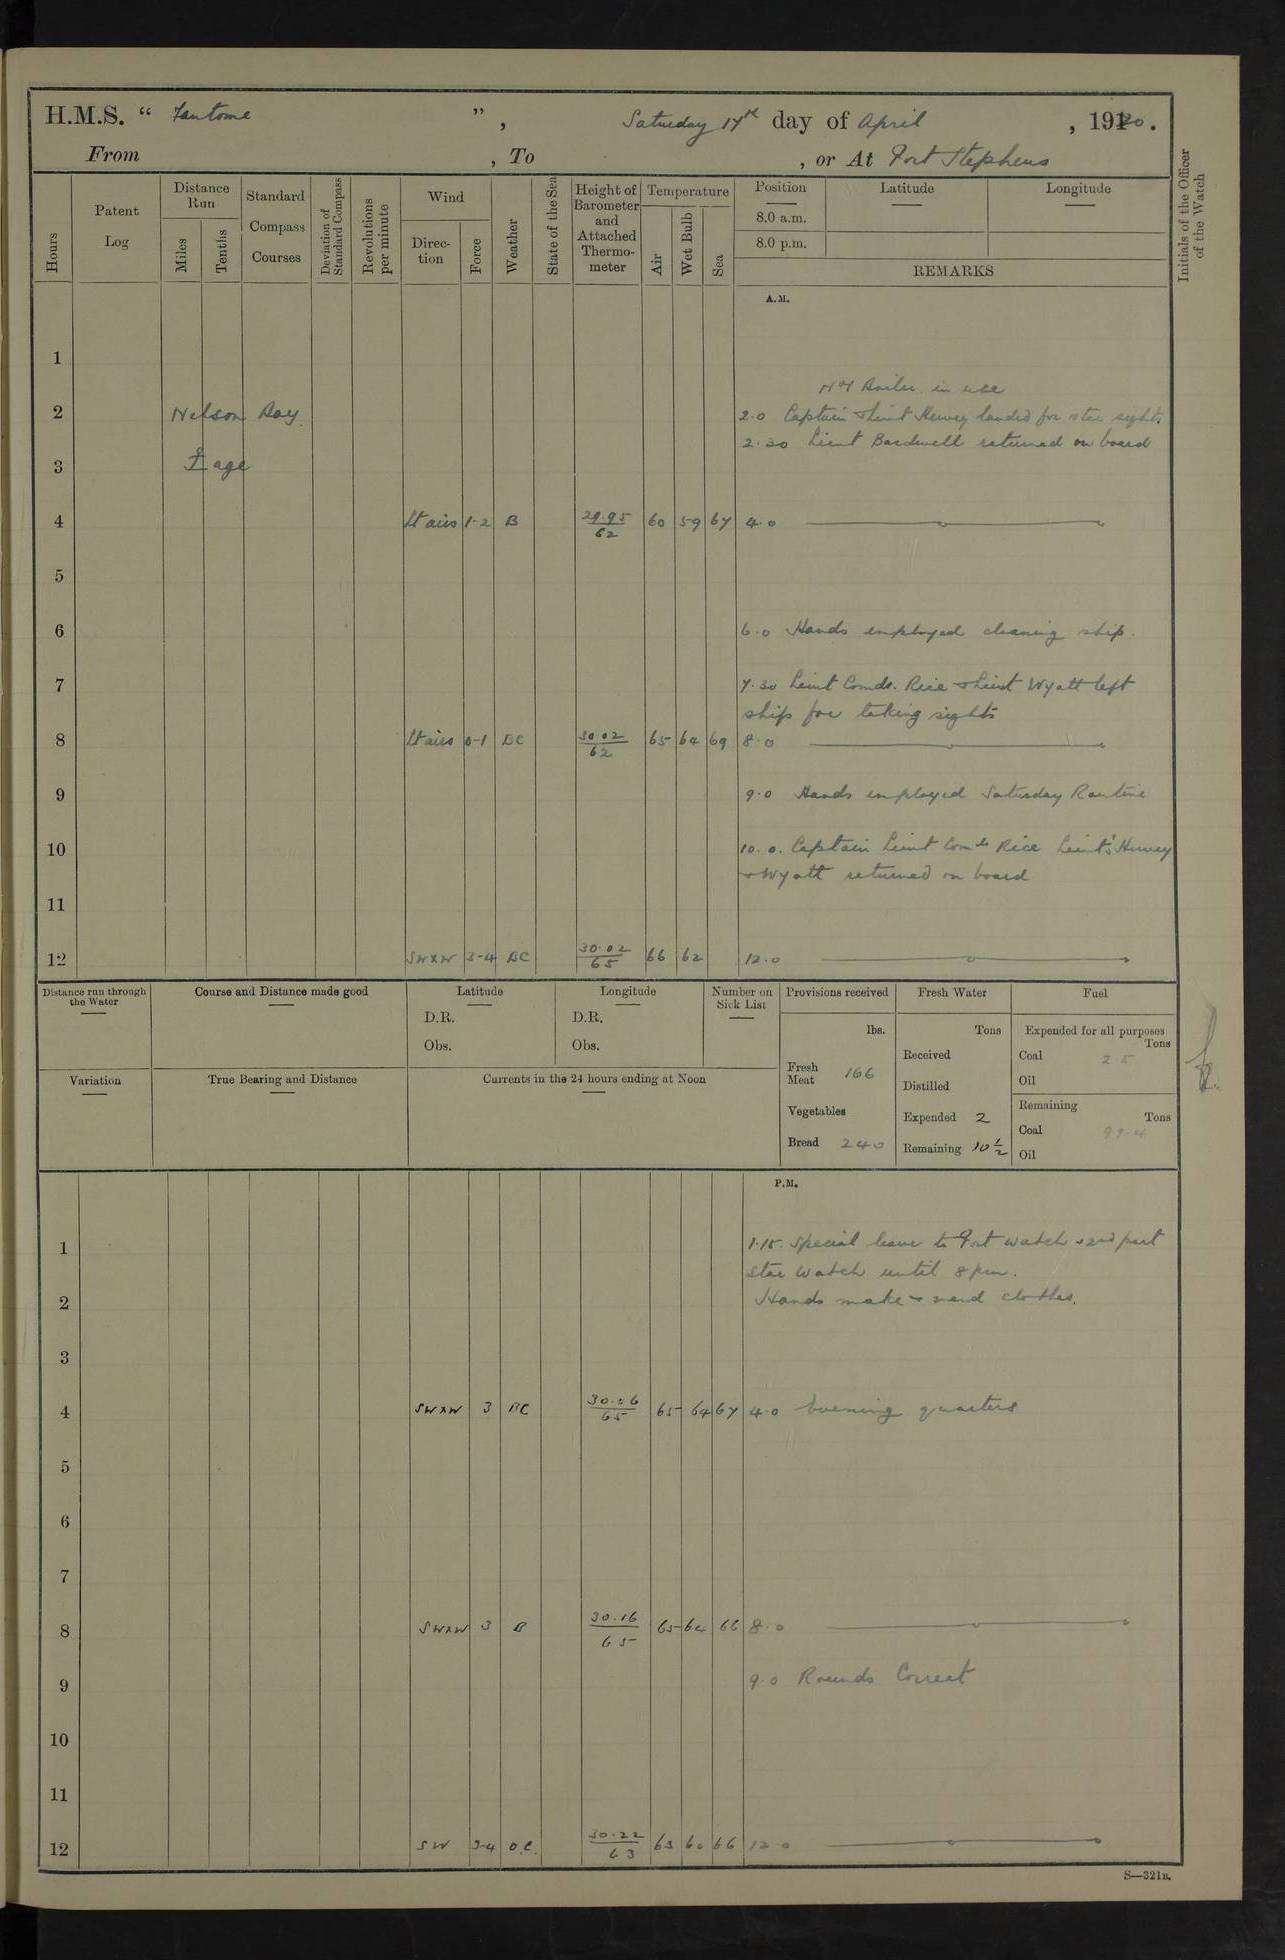 H.M.S. “ Fantome ”, Saturday 17th day of April, 1920.
From , To , or At Port Stephens
Hours
Patent Log
Distance Run
Miles
Tenths
Standard Compass Courses
Deviation of Standard Compass
Revolutions per minute
Wind
Direction
Force
Weather
State of the Sea
Height of Barometer and Attached Thermometer
Temperature
Air
Wet Bulb
Sea
Position
8.0 a.m.
8.0 p.m.
Latitude
Longitude
REMARKS
Initials of the Officer of the Watch
A.M.
1
Boiler in use
2 Nelson Bay 2.0 Captain & Lieut Hervey landed for star sights.
2.30 Lieut Bardwell returned on board
3 age
4 Lt airs 1-2 B 29.95/62 60 59 67 4.0
5
6 6.0 Hands employed cleaning ship.
7 7.30 Lieut Comdr. Rice & Lieut Wyatt left
ship for taking sights
8 Lt airs 0-1 BC 30.02/62 65 64 69 8.0
9 9.0 Hands employed Saturday Routine
10 10.0. Captain Lieut Comdr Rice Lieuts Hervey
& Wyatt returned on board
11
12 SWxW 3-4 BC 30.02/65 66 62 12.0
Distance run through the Water
Course and Distance made good
Latitude
D.R.
Obs.
Longitude
D.R.
Obs.
Number on Sick List
Provisions received
lbs.
Fresh Meat 166
Vegetables
Bread 240
Fresh Water
Tons
Received
Distilled
Expended 2
Remaining 10 1/2
Fuel
Expended for all purposes
Tons
Coal 2.5
Oil
Remaining
Tons
Coal 99.4
Oil
Variation
True Bearing and Distance
Currents in the 24 hours ending at Noon
P.M.
1 1.15. Special leave to Port watch & 2nd part
Star Watch until 8 pm.
2 Hands make & mend clothes.
3
4 SWxW 3 BC 30.06/65 65 64 67 4.0 Evening quarters
5
6
7
8 SWxW 3 B 30.16/65 65 64 66 8.0
9 9.0 Rounds Correct
10
11
12 SW 3-4 O.C. 30.22/63 63 60 66 12.0
S—321B.